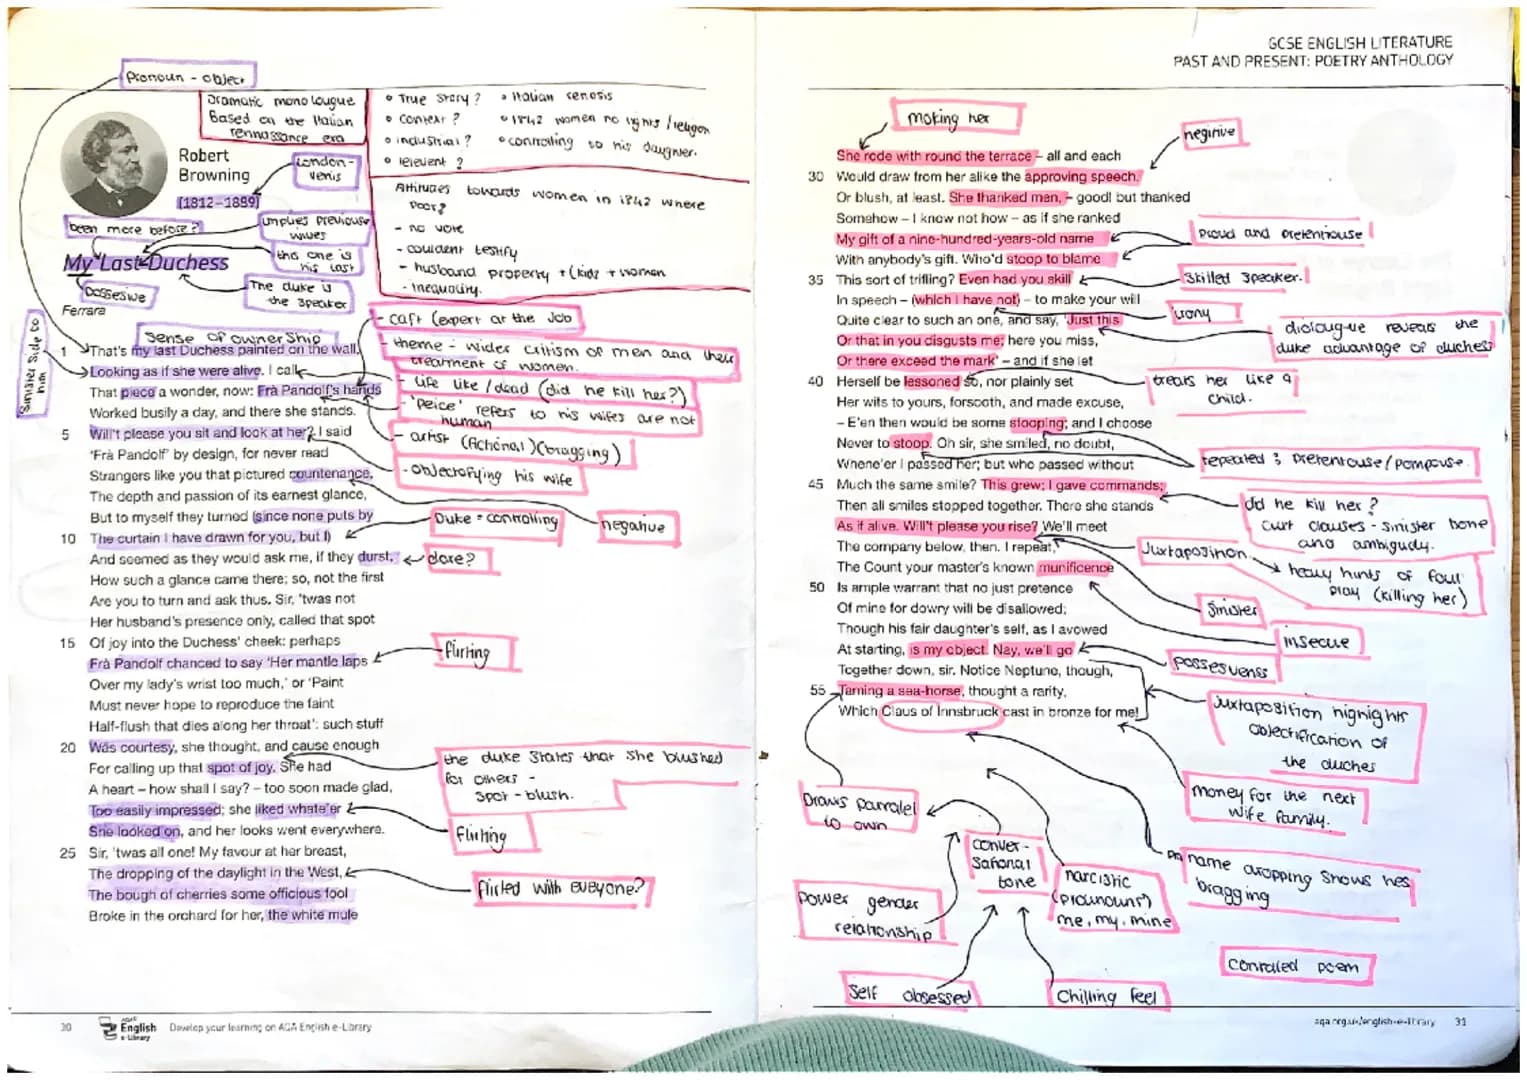 GCSE ENGLISH LITERATURE
PAST AND PRESENT: POETRY ANTHOLOGY
Pronoun - object
Dramatic monolougue
Based on the Italian
rennassance era
• True story?
• context?
• industrial?
• relevent?
• Italian renosis
• 1842 women no rights/religon
• controlling to his daughter.
Attitudes towards women in 1842 where
poor?
- no vote
- couldent testify
- husband property + (kids + women
- inequality.
Robert
Browning
(1812–1889)
London-
venis
been more before?
implies previouse
wives
this one is
his last
My Last Duchess
possesive
The duke is
the speaker
Ferrara
sinister side to
him
Sense of ownership
1 That's my last Duchess painted on the wall,
Looking as if she were alive. I call
That piece a wonder, now: Frà Pandolf's hands
Worked busily a day, and there she stands.
5 Will't please you sit and look at her? I said
'Frà Pandolf' by design, for never read
Strangers like you that pictured countenance,
The depth and passion of its earnest glance,
But to myself they turned (since none puts by
10 The curtain I have drawn for you, but I)
And seemed as they would ask me, if they durst,
How such a glance came there; so, not the first
Are you to turn and ask thus. Sir, 'twas not
Her husband's presence only, called that spot
15 Of joy into the Duchess' cheek: perhaps
Frà Pandolf chanced to say 'Her mantle laps
Over my lady's wrist too much,' or 'Paint
Must never hope to reproduce the faint
Half-flush that dies along her throat': such stuff
20 Was courtesy, she thought, and cause enough
For calling up that spot of joy. She had
A heart – how shall I say? – too soon made glad,
Too easily impressed; she liked whate'er
She looked on, and her looks went everywhere.
25 Sir, 'twas all one! My favour at her breast,
The dropping of the daylight in the West,
The bough of cherries some officious fool
Broke in the orchard for her, the white mule
- caft (expert at the job
- theme - wider critism of men and their
treatment of women.
- life like/dead (did he kill her?)
- 'peice' refers to his wifes are not
human
- artist (fictional)(bragging)
- objectofying his wife
Duke = controlling
negative
dare?
flirting
the duke states that she blushed
for others -
spot - blush.
flirting
flirted with everyone?
30
AQA
English
e-Library
Develop your learning on AQA English e-Library
making her
negitive
She rode with round the terrace – all and each
30 Would draw from her alike the approving speech,
Or blush, at least. She thanked men, – good! but thanked
Somehow – I know not how – as if she ranked
My gift of a nine-hundred-years-old name
With anybody's gift. Who'd stoop to blame
35 This sort of trifling? Even had you skill
In speech – (which I have not) – to make your will
Quite clear to such an one, and say, 'Just this
Or that in you disgusts me; here you miss,
Or there exceed the mark' – and if she let
40 Herself be lessoned so, nor plainly set
Her wits to yours, forsooth, and made excuse,
– E'en then would be some stooping; and I choose
Never to stoop. Oh sir, she smiled, no doubt,
Whene'er I passed her; but who passed without
45 Much the same smile? This grew; I gave commands;
Then all smiles stopped together. There she stands
As if alive. Will't please you rise? We'll meet
The company below, then. I repeat,
The Count your master's known munificence
50 Is ample warrant that no just pretence
Of mine for dowry will be disallowed;
Though his fair daughter's self, as I avowed
At starting, is my object. Nay, we'll go
Together down, sir. Notice Neptune, though,
55 Taming a sea-horse, thought a rarity,
Which Claus of Innsbruck cast in bronze for me!
proud and pretentouse
Skilled speaker.
irony
diolougue reveals the
duke advantage of duchess
treats her like a
child.
repeated ; pretentouse/pompouse.
did he kill her?
curt clauses - sinister tone
and ambiguidy.
Juxtaposition
heavy hints of foul
play (killing her)
Sinister
insecue
possesveness
Juxtaposition highights
objectification of
the duches
money for the next
wife family.
name dropping shows hes
bragging
Draws parralel
to own
conver-
sational
tone
narcistic
(prounouns)
me, my, mine
power gender
relationship
self obsessed
Chilling feel
controlled poem
aqa.org.uk/english-e-library 31